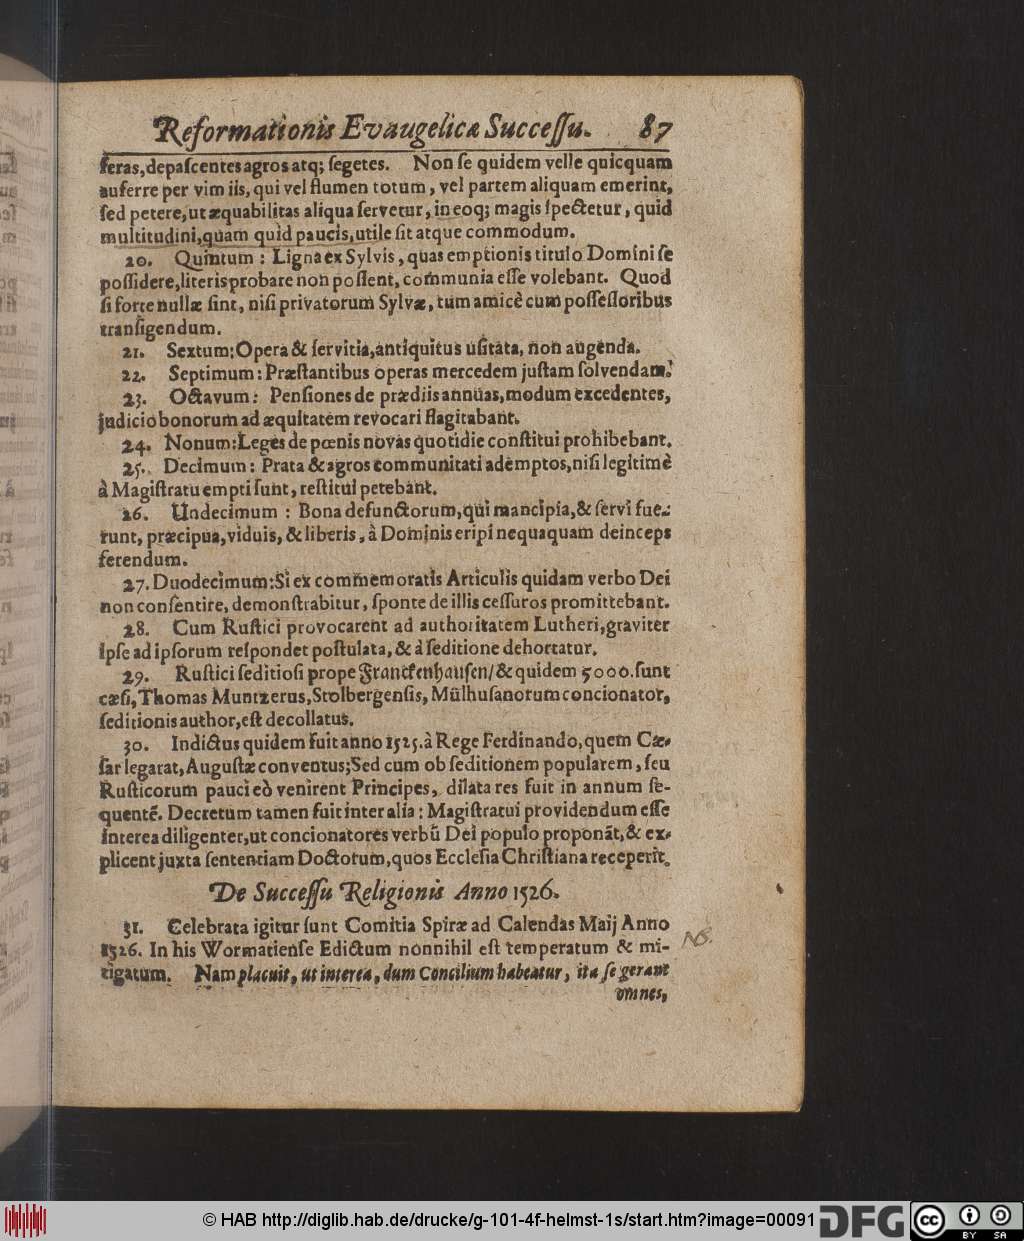 Reformationis Evaugelica Succeſſu. 87
feras,depaſcentes agros atq; ſegetes. Non ſe quidem velle quicquam
auferre per vim iis, qui vel flumen totum, vel partem aliquam emerint,
ſed petere,ut æquabilitas aliqua ſervetur, in eoq; magis ſpectetur, quid
multitudini,quam quid paucis,utile ſit atque commodum.
20. Quintum : Ligna ex Sylvis, quas emptionis titulo Domini ſe
poſſidere,literis probare non poſſent, communia eſſe volebant. Quod
ſi forte nullæ ſint, niſi privatorum Sylvæ, tum amicè cum poſſeſſoribus
tranſigendum.
21. Sextum:Opera & ſervitia,antiquitus uſitata, non augenda.
22. Septimum: Præſtantibus operas mercedem juſtam ſolvendam.
23. Octavum: Penſiones de prædiis annuas,modum excedentes,
judicio bonorum ad æquitatem revocari flagitabant.
24. Nonum:Leges de pœnis novas quotidie conſtitui prohibebant.
25. Decimum: Prata & agros communitati ademptos,niſi legitimè
à Magiſtratu empti ſunt, reſtitui petebant.
26. Undecimum : Bona defunctorum,qui mancipia,& ſervi fue-
runt, præcipua,viduis, & liberis, à Dominis eripi nequaquam deinceps
ferendum.
27. Duodecimum:Si ex commemoratis Articulis quidam verbo Dei
non conſentire, demonſtrabitur, ſponte de illis ceſſuros promittebant.
28. Cum Ruſtici provocarent ad authoritatem Lutheri,graviter
ipſe ad ipſorum reſpondet poſtulata, & à ſeditione dehortatur.
29. Ruſtici ſeditioſi prope Franckenhauſen/ & quidem 5000. ſunt
cæſi, Thomas Muntzerus, Stolbergenſis, Mülhuſanorum concionator,
ſeditionis author,eſt decollatus.
30. Indictus quidem fuit anno 1525. à Rege Ferdinando, quem Cæ-
ſar legarat, Auguſtæ conventus;Sed cum ob ſeditionem popularem, ſeu
Ruſticorum pauci eò venirent Principes, dilata res fuit in annum ſe-
quentẽ. Decretum tamen fuit inter alia : Magiſtratui providendum eſſe
interea diligenter,ut concionatores verbũ Dei populo proponãt,& ex-
plicent juxta ſententiam Doctotum,quos Eccleſia Chriſtiana receperit.
De Succeſſu Religionis Anno 1526.
31. Celebrata igitur ſunt Comitia Spiræ ad Calendas Maij Anno
1526. In his Wormatienſe Edictum nonnihil eſt temperatum & mi-
tigatum. Nam placuit, ut interea, dum Concilium habeatur, ita ſe gerant
omnes,
NB.
© HAB http://diglib.hab.de/drucke/g-101-4f-helmst-1s/start.htm?image=00091 DFG cc BY SA